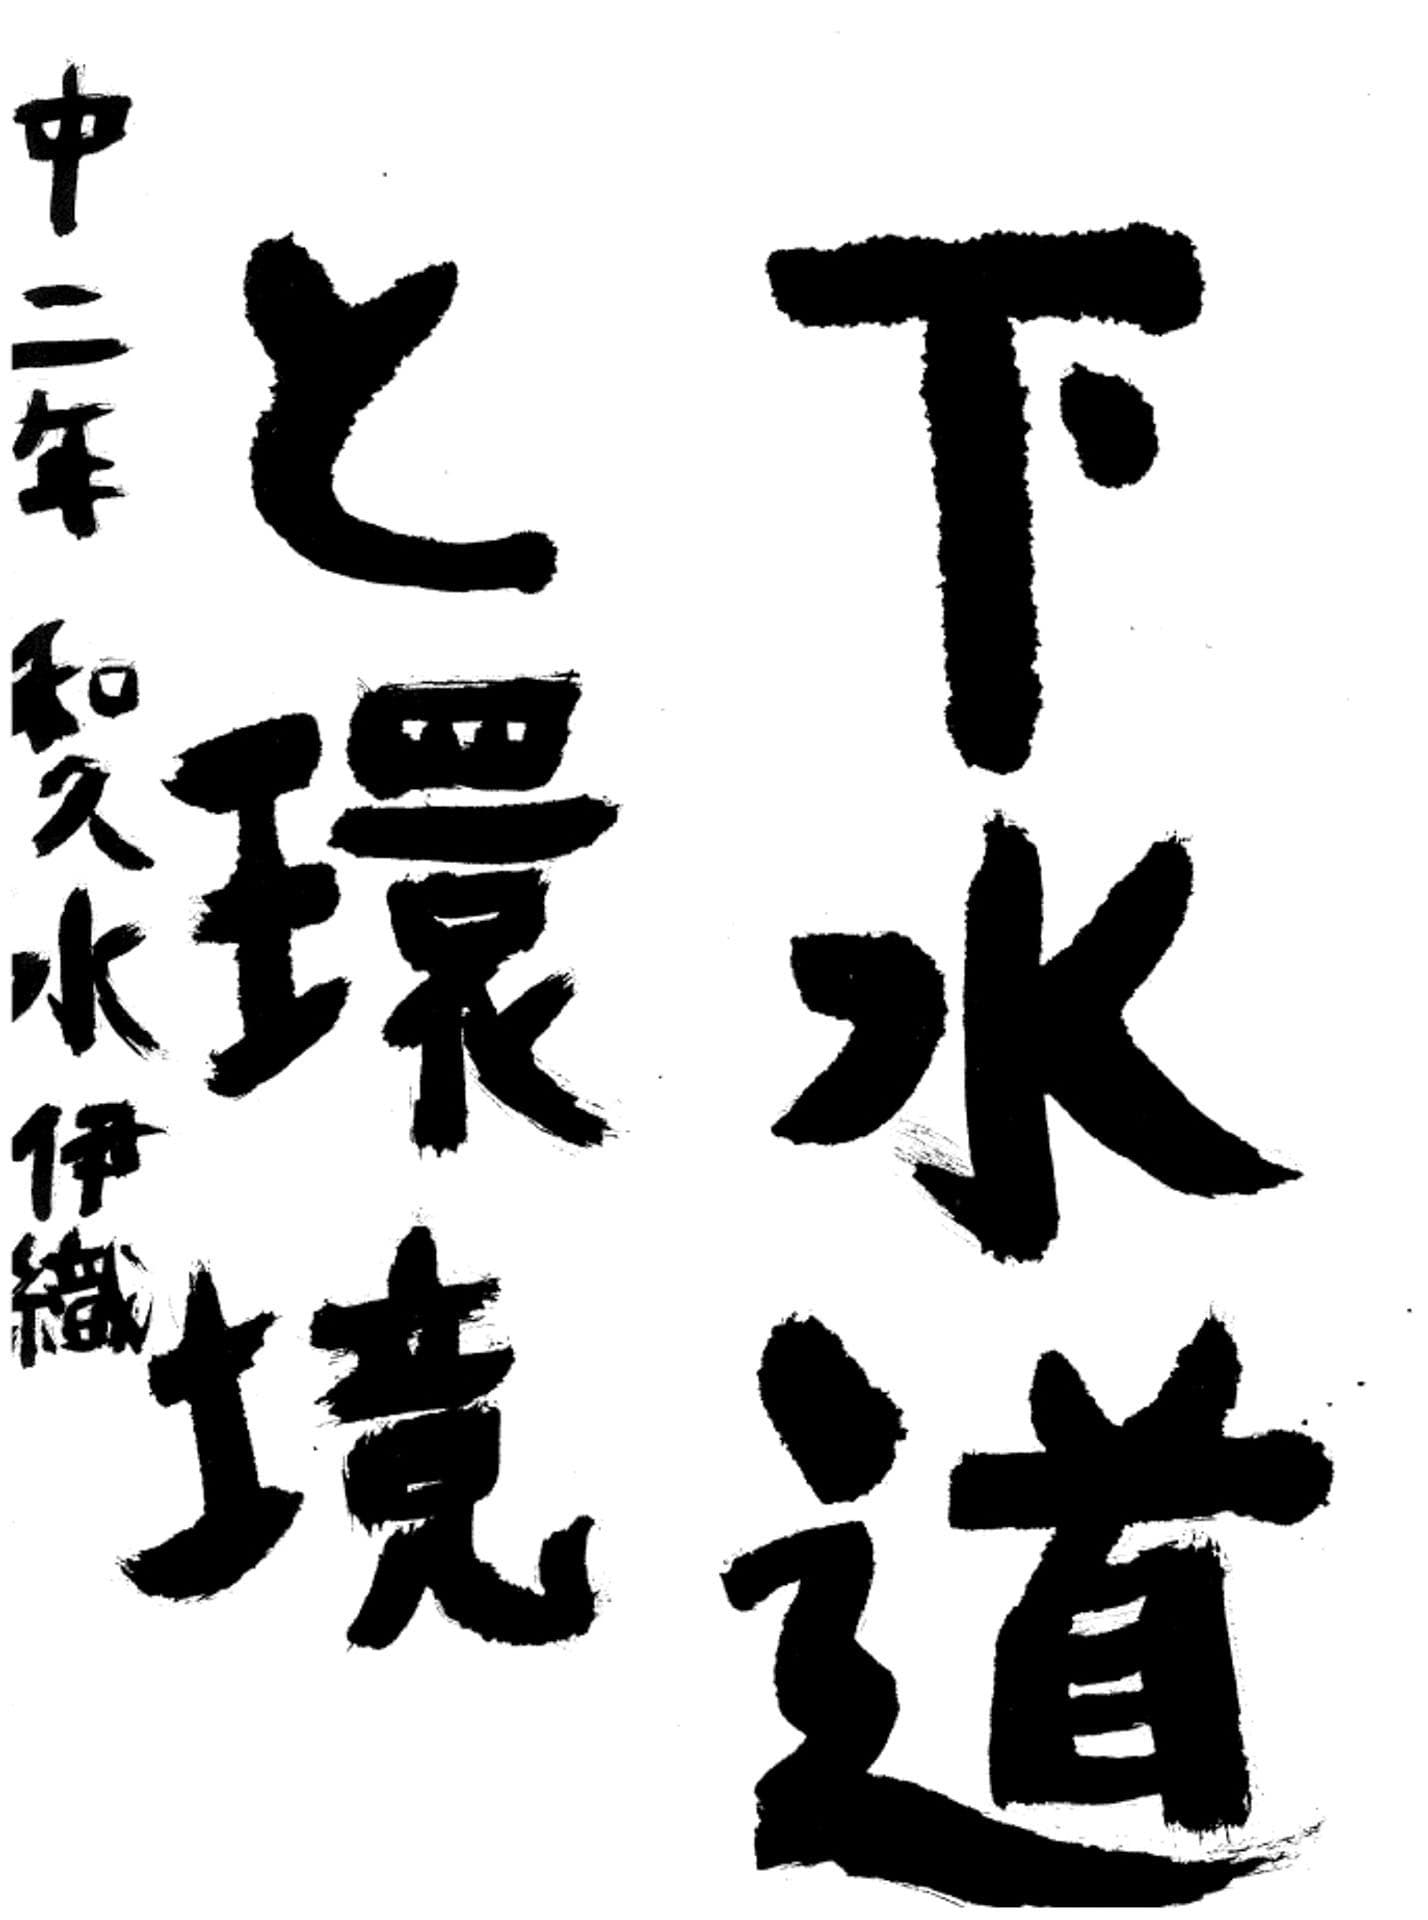 下水道
と環境
中二年 和久水 伊織